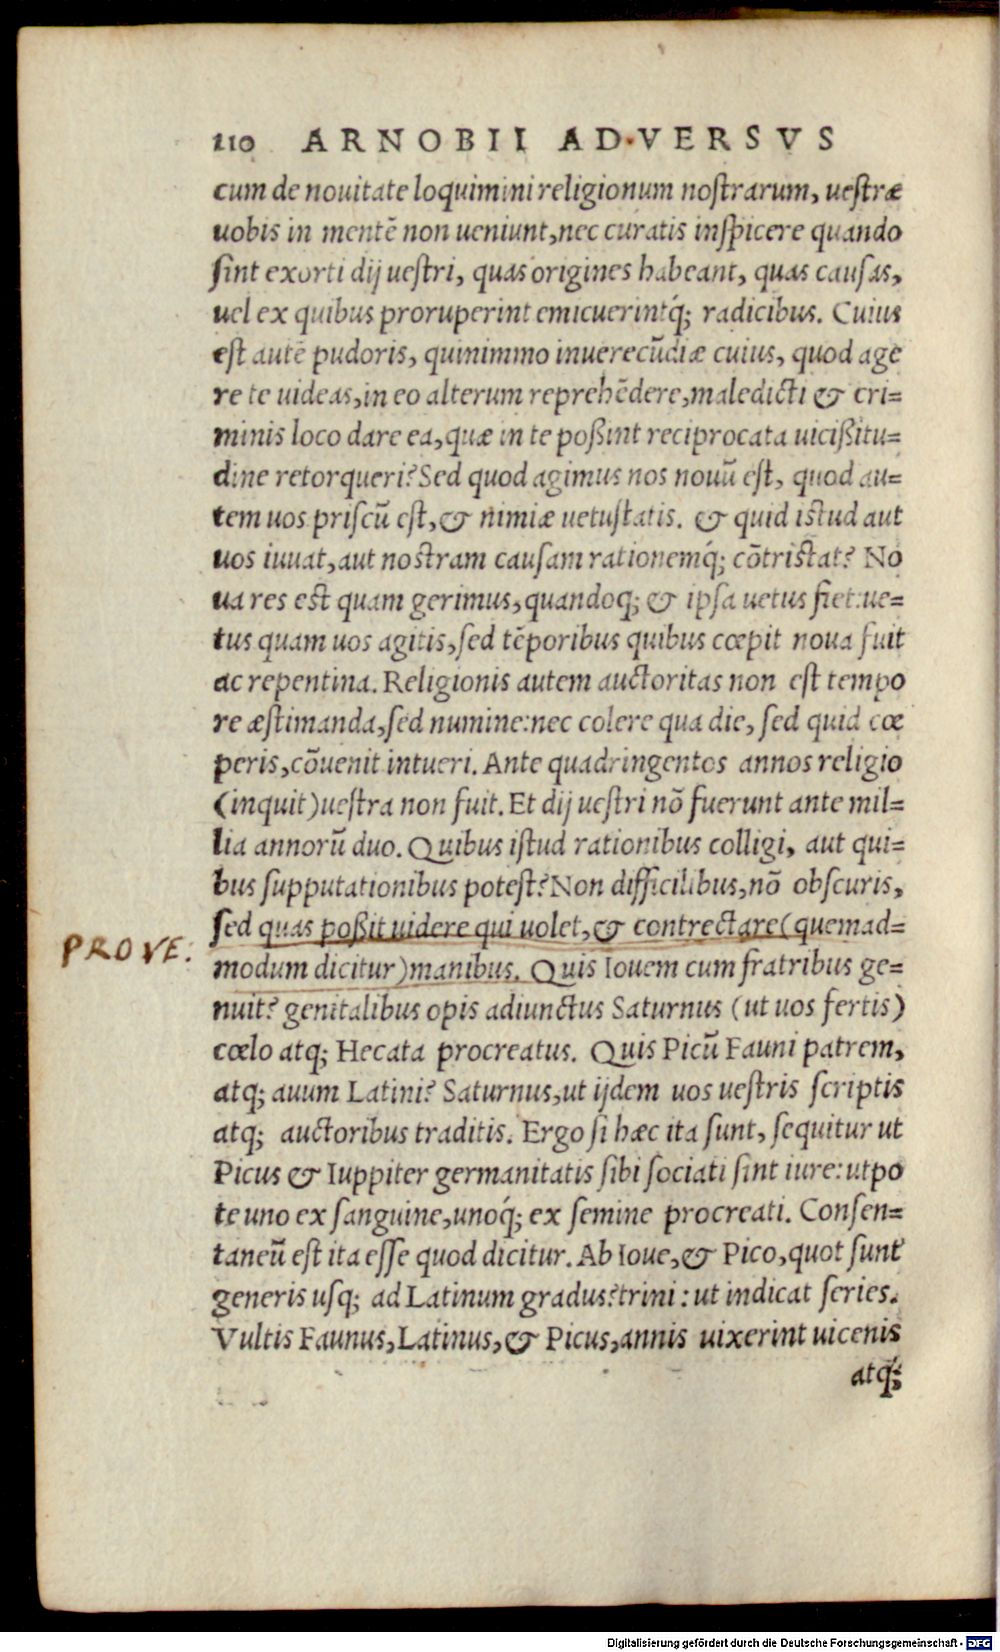 110 ARNOBII ADVERSVS
cum de nouitate loquimini religionum nostrarum, uestræ
uobis in mentē non ueniunt, nec curatis inspicere quando
sint exorti dij uestri, quas origines habeant, quas causas,
uel ex quibus proruperint emicuerintq́; radicibus. Cuius
est autē pudoris, quinimmo inuerecūdiæ cuius, quod age
re te uideas, in eo alterum reprehēdere, maledicti & cri=
minis loco dare ea, quæ in te poßint reciprocata uicißitu=
dine retorqueri? Sed quod agimus nos nouū est, quod au=
tem uos priscū est, & nimiæ uetustatis. & quid istud aut
uos iuuat, aut nostram causam rationemq́; cōtristat? No
ua res est quam gerimus, quandoq; & ipsa uetus fiet: ue=
tus quam uos agitis, sed tēporibus quibus cœpit noua fuit
ac repentina. Religionis autem auctoritas non est tempo
re æstimanda, sed numine: nec colere qua die, sed quid cœ
peris, cōuenit intueri. Ante quadringentos annos religio
(inquit) uestra non fuit. Et dij uestri nō fuerunt ante mil=
lia annorū duo. Quibus istud rationibus colligi, aut qui=
bus supputationibus potest? Non difficilibus, nō obscuris,
sed quas poßit uidere qui uolet, & contrectare (quemad=
PROVE:
modum dicitur) manibus. Quis Iouem cum fratribus ge=
nuit? genitalibus opis adiunctus Saturnus (ut uos fertis)
cœlo atq; Hecata procreatus. Quis Picū Fauni patrem,
atq; auum Latini? Saturnus, ut ijdem uos uestris scriptis
atq; auctoribus traditis. Ergo si hæc ita sunt, sequitur ut
Picus & Iuppiter germanitatis sibi sociati sint iure: utpo
te uno ex sanguine, unoq́; ex semine procreati. Consen=
taneū est ita esse quod dicitur. Ab Ioue, & Pico, quot sunt
generis usq; ad Latinum gradus? trini: ut indicat series.
Vultis Faunus, Latinus, & Picus, annis uixerint uicenis
atq́;
Digitalisierung gefördert durch die Deutsche Forschungsgemeinschaft - DFG